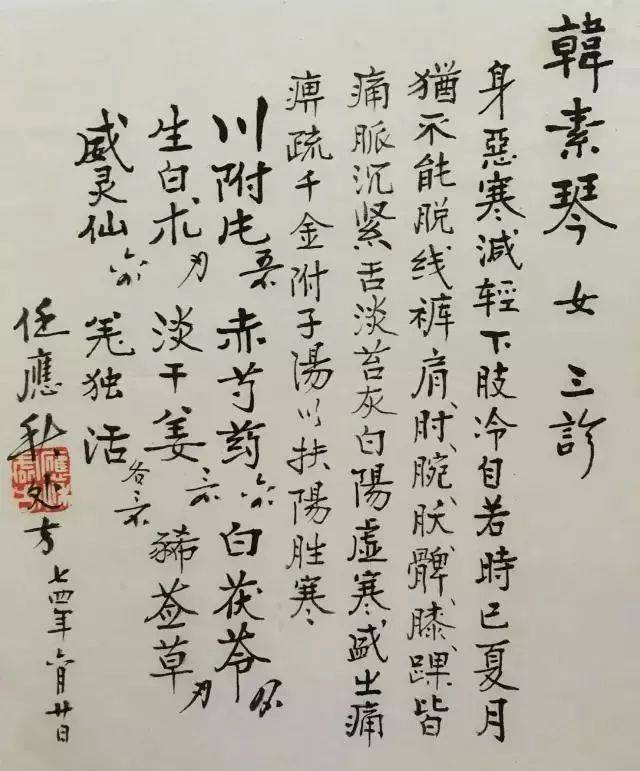 韓素琴 女 三診
身惡寒減輕下肢冷自若時已夏月
猶不能脱线裤肩、肘、腕、肷、髀、膝、踝皆
痛脈沉紧舌淡苔灰白陽虛寒盛之痛
痹疏千金附子湯以扶陽胜寒
川附片 赤芍药 白茯苓
生白术 淡干姜 豨莶草
威灵仙 羌独活 各
任應秋处方 七四年六月廿日